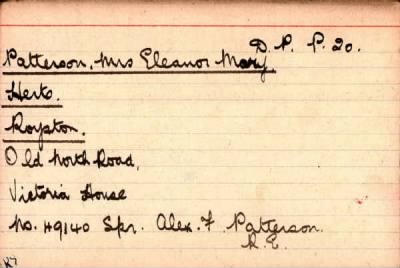 D. P. P. 20.
Patterson, Mrs Eleanor Mary.
Herts.
Royston.
Old North Road,
Victoria House
No. 49140 Spr. Alex. F. Patterson.
R. E.